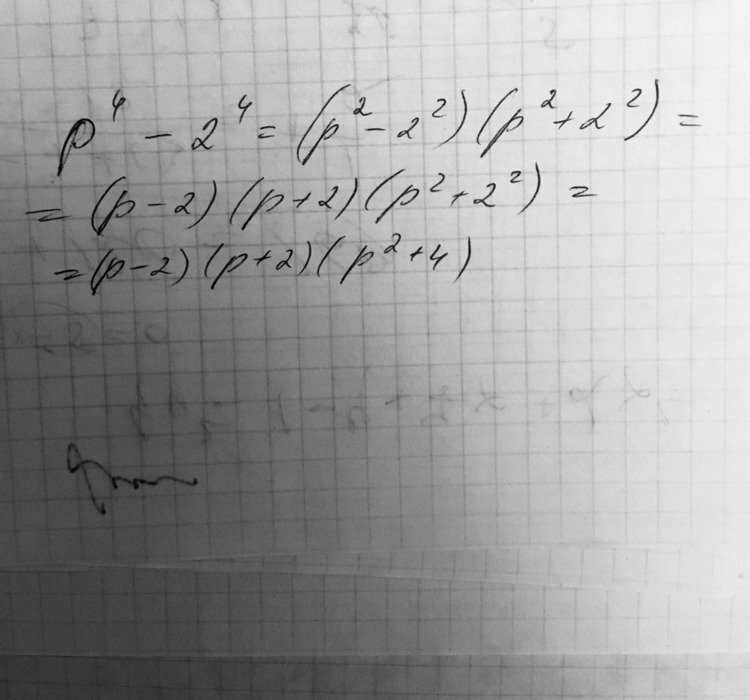 p⁴ - 2⁴ = (p² - 2²)(p² + 2²) =
= (p - 2)(p + 2)(p² + 2²) =
= (p - 2)(p + 2)(p² + 4)